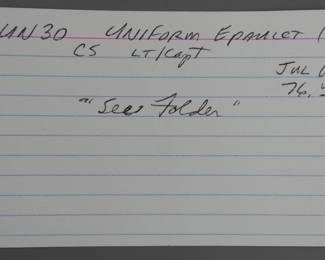 UN30 UNIFORM EPAULET (
CS LT/Capt
JUL
76,
"See Folder"